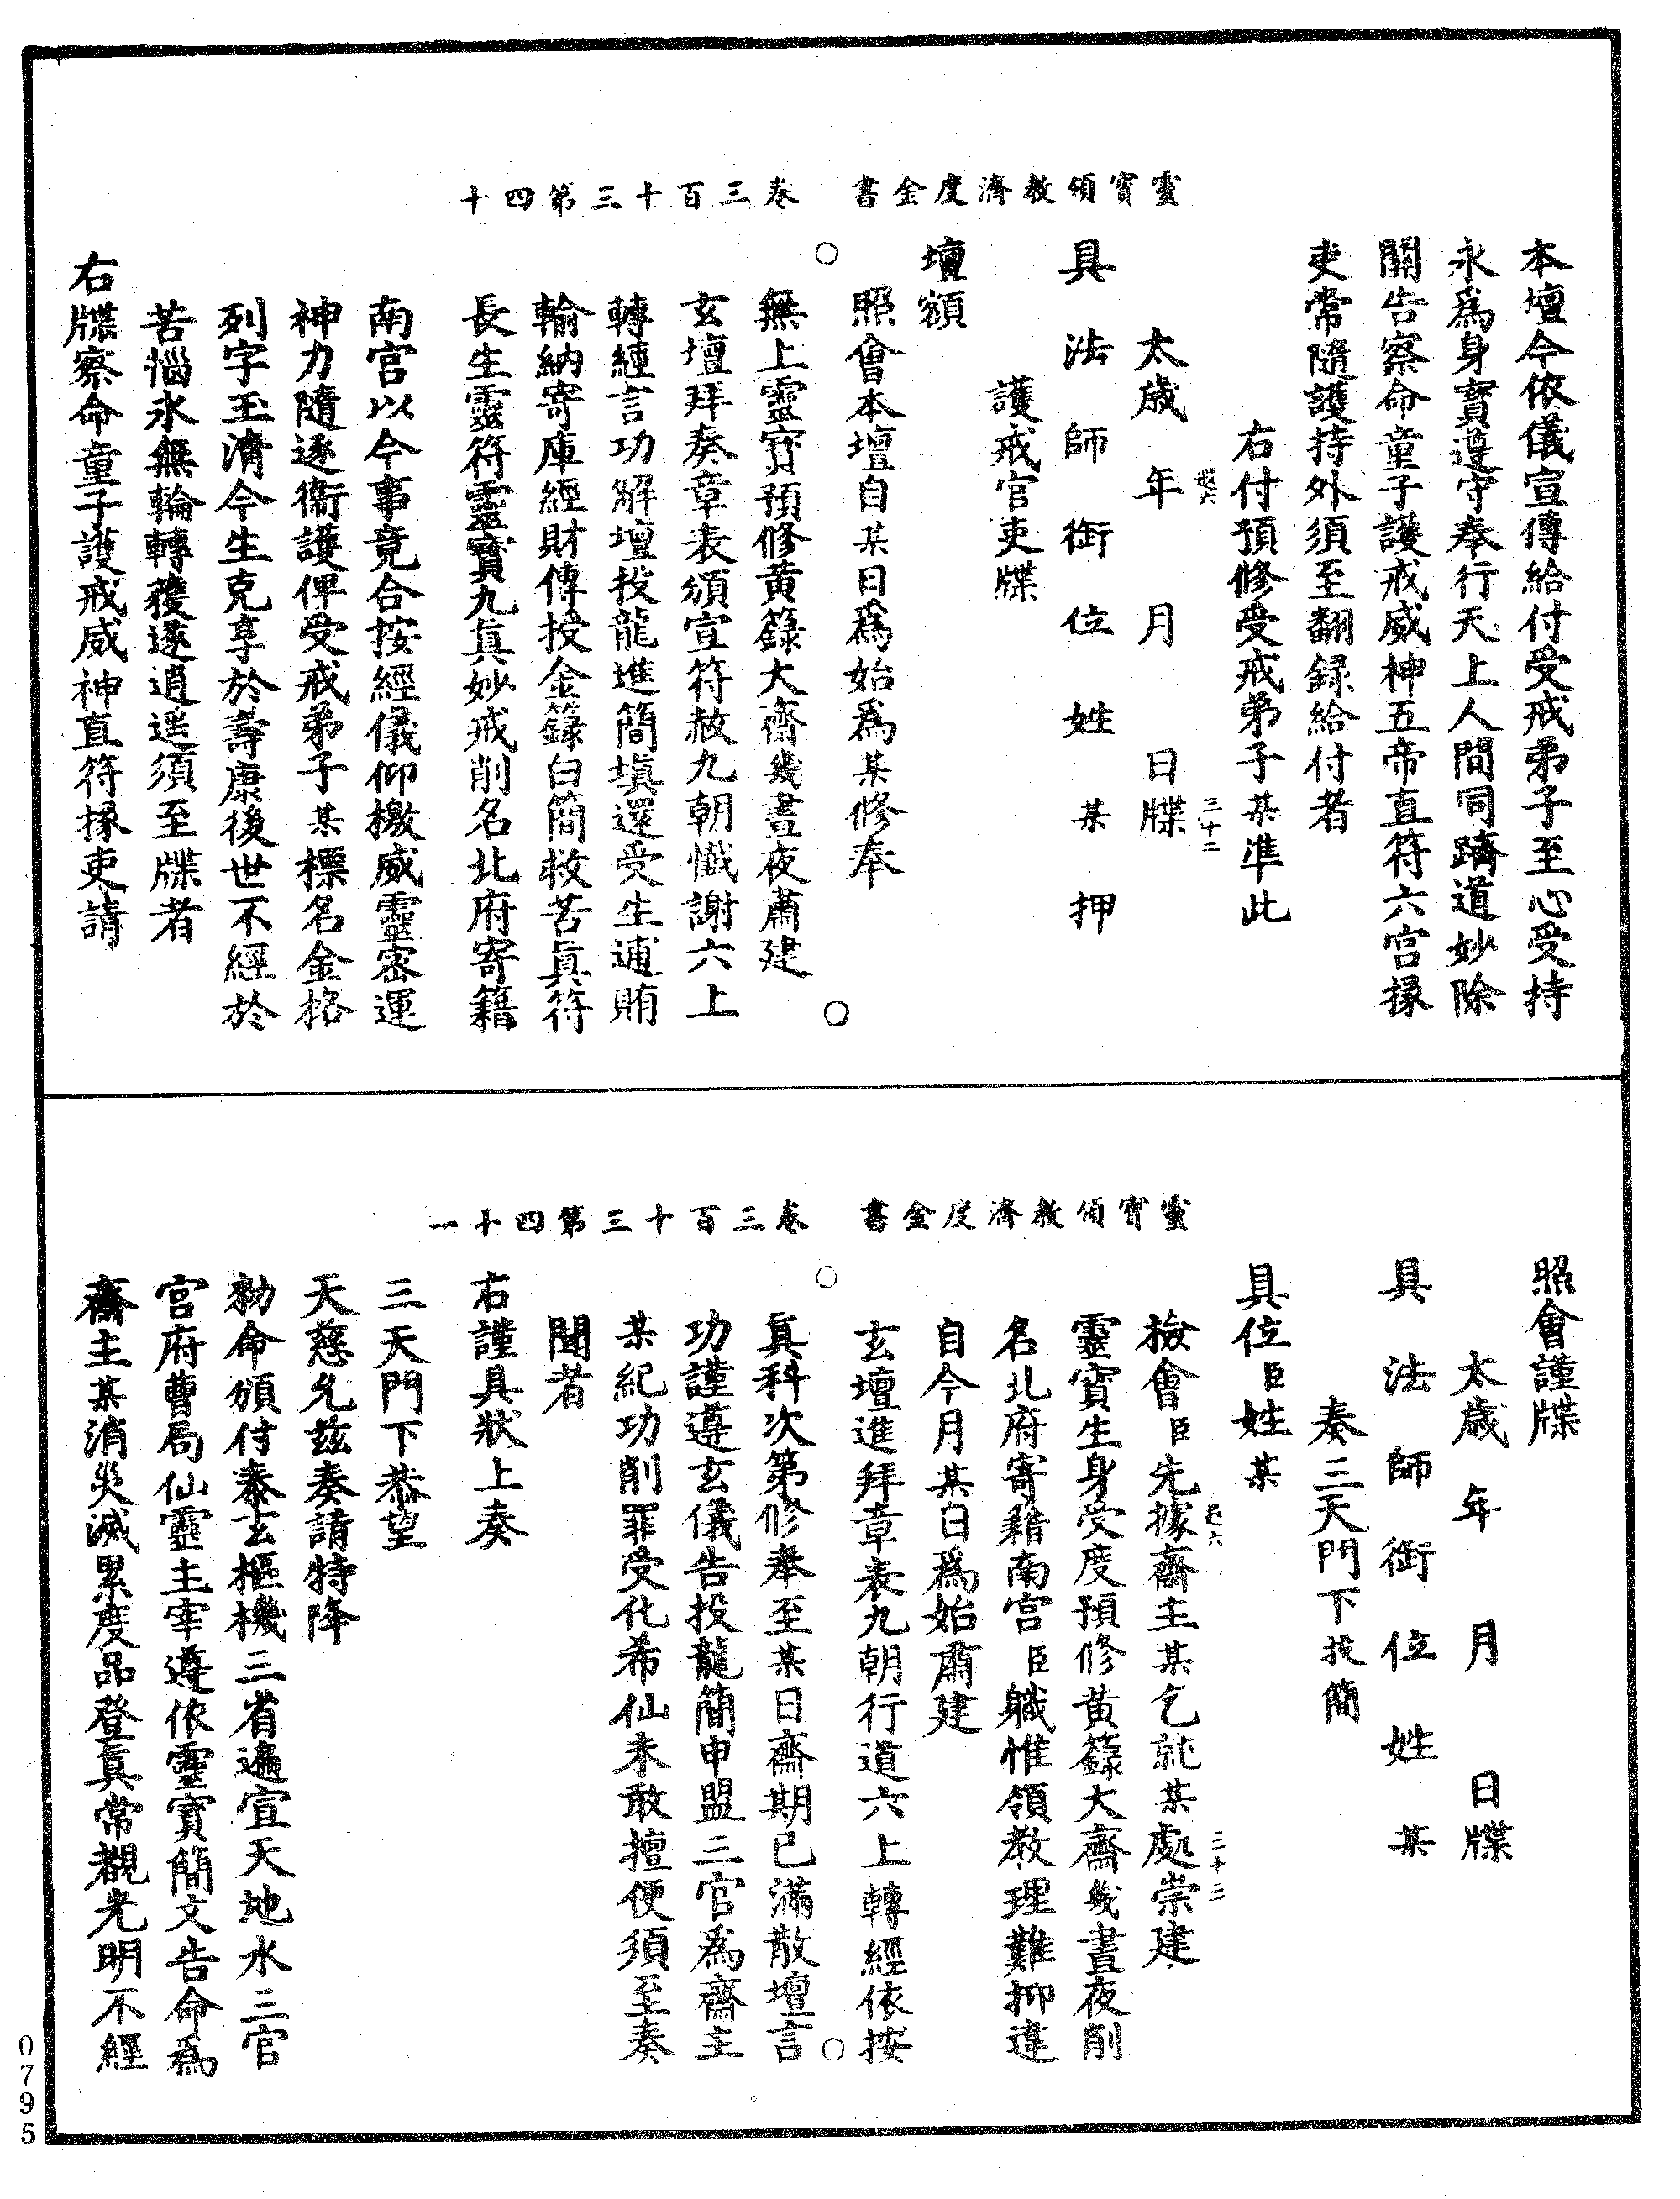 靈寶領教濟度金書　卷三百十三第四十
本壇今依儀宣傳給付受戒弟子至心受持
永爲身寶遵守奉行天上人間同躋道妙除
關告察命童子護戒威神五帝直符六宮掾
吏常隨護持外須至翻録給付者
右付預修受戒弟子某準此
三十二
太歲　年　月　日牒
具法師銜位姓某押
護戒官吏牒
壇額
照會本壇自某日爲始爲某修奉
無上靈寶預修黃籙大齋幾晝夜肅建
玄壇拜奏章表頒宣符赦九朝懺謝六上
轉經言功解壇投龍進簡填還受生逋賄
輸納寄庫經財傳投金籙白簡救苦眞符
長生靈符靈寶九眞妙戒削名北府寄籍
南宮以今事竟合按經儀仰檄威靈密運
神力隨逐衞護俾受戒弟子某標名金格
列字玉清今生克享於壽康後世不經於
苦惱永無輪轉獲遂逍遥須至牒者
右牒察命童子護戒威神直符掾吏請
靈寶領教濟度金書　卷三百十三第四十一
照會謹牒
太歲　年　月　日牒
具法師銜位姓某
奏三天門下投簡
具位臣姓某
三十三
檢會臣先據齋主某乞就某處崇建
靈寶生身受度預修黃籙大齋幾晝夜削
名北府寄籍南宮臣職惟領教理難抑違
自今月某日爲始肅建
玄壇進拜章表九朝行道六上轉經依按
眞科次第修奉至某日齋期已滿散壇言
功謹遵玄儀告投龍簡申盟三官爲齋主
某紀功削罪受化希仙未敢擅便須至奏
聞者
右謹具狀上奏
三天門下恭望
天慈允兹奏請特降
勑命頒付泰玄樞機三省遍宣天地水三官
宮府曹局仙靈主宰遵依靈寶簡文告命爲
齋主某消災滅累度品登眞常覩光明不經
0795